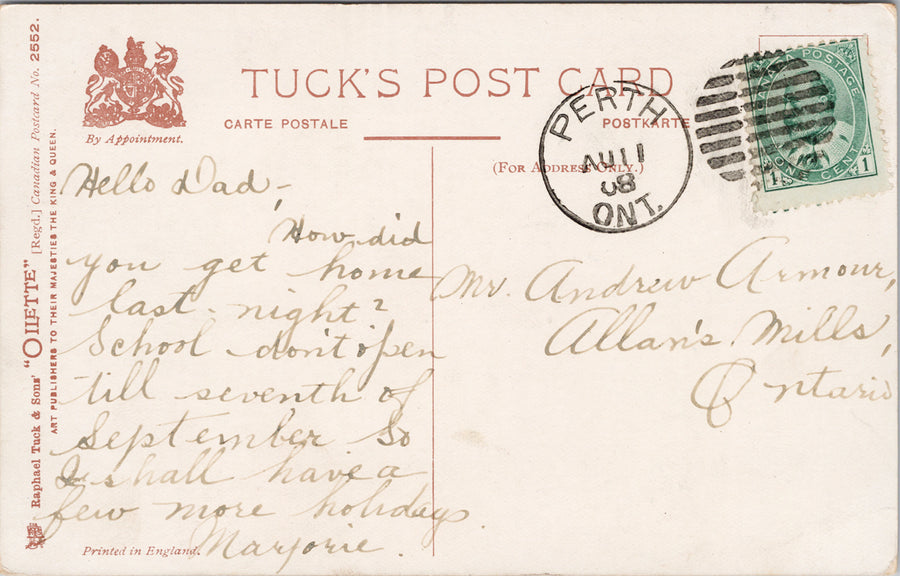 TUCK'S POST CARD
By Appointment.
CARTE POSTALE
POSTKARTE
(For Address Only.)
PERTH
AU 11
08
ONT.
CANADA POSTAGE
1 ONE CENT 1
Hello Dad -
How did
you get home
last night?
School don't open
till seventh of
September so
I shall have a
few more holidays.
Marjorie.
Mr. Andrew Armour,
Allan's Mills,
Ontario
Printed in England.
Raphael Tuck & Sons' "OILETTE" [Regd.] Canadian Postcard No. 2552.
ART PUBLISHERS TO THEIR MAJESTIES THE KING & QUEEN.